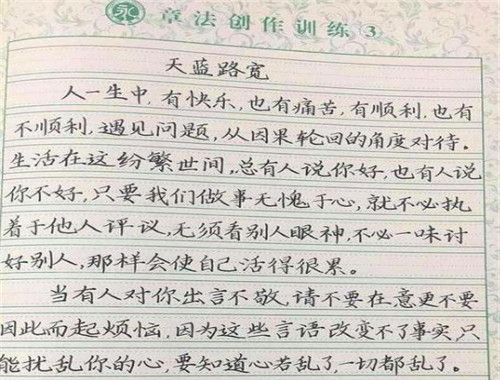 永 章法创作训练 3
天蓝路宽
人一生中,有快乐,也有痛苦,有顺利,也有
不顺利,遇见问题,从因果轮回的角度对待。
生活在这纷繁世间,总有人说你好,也有人说
你不好,只要我们做事无愧于心,就不必执
着于他人评议,无须看别人眼神,不必一味讨
好别人,那样会使自己活得很累。
当有人对你出言不敬,请不要在意更不要
因此而起烦恼,因为这些言语改变不了事实,只
能扰乱你的心,要知道心若乱了,一切都乱了。